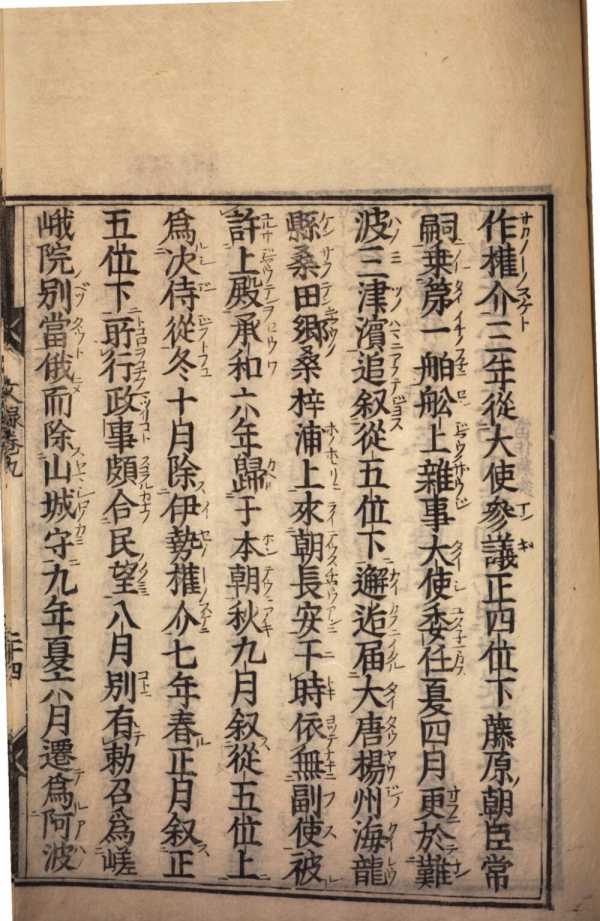 作權介三年從大使參議正四位下藤原朝臣常
嗣乗第一舶舩上雜事大使委任夏四月更於難
波三津濱追叙從五位下邂逅届大唐楊州海龍
縣桑田郷桑梓浦上來朝長安于時依無副使被
許上殿承和六年歸于本朝秋九月叙從五位上
爲次侍從冬十月除伊勢權介七年春正月叙正
五位下所行政事頗合民望八月別有勅召爲嵯
峨院別當俄而除山城守九年夏六月遷爲阿波
文録卷九
二十四